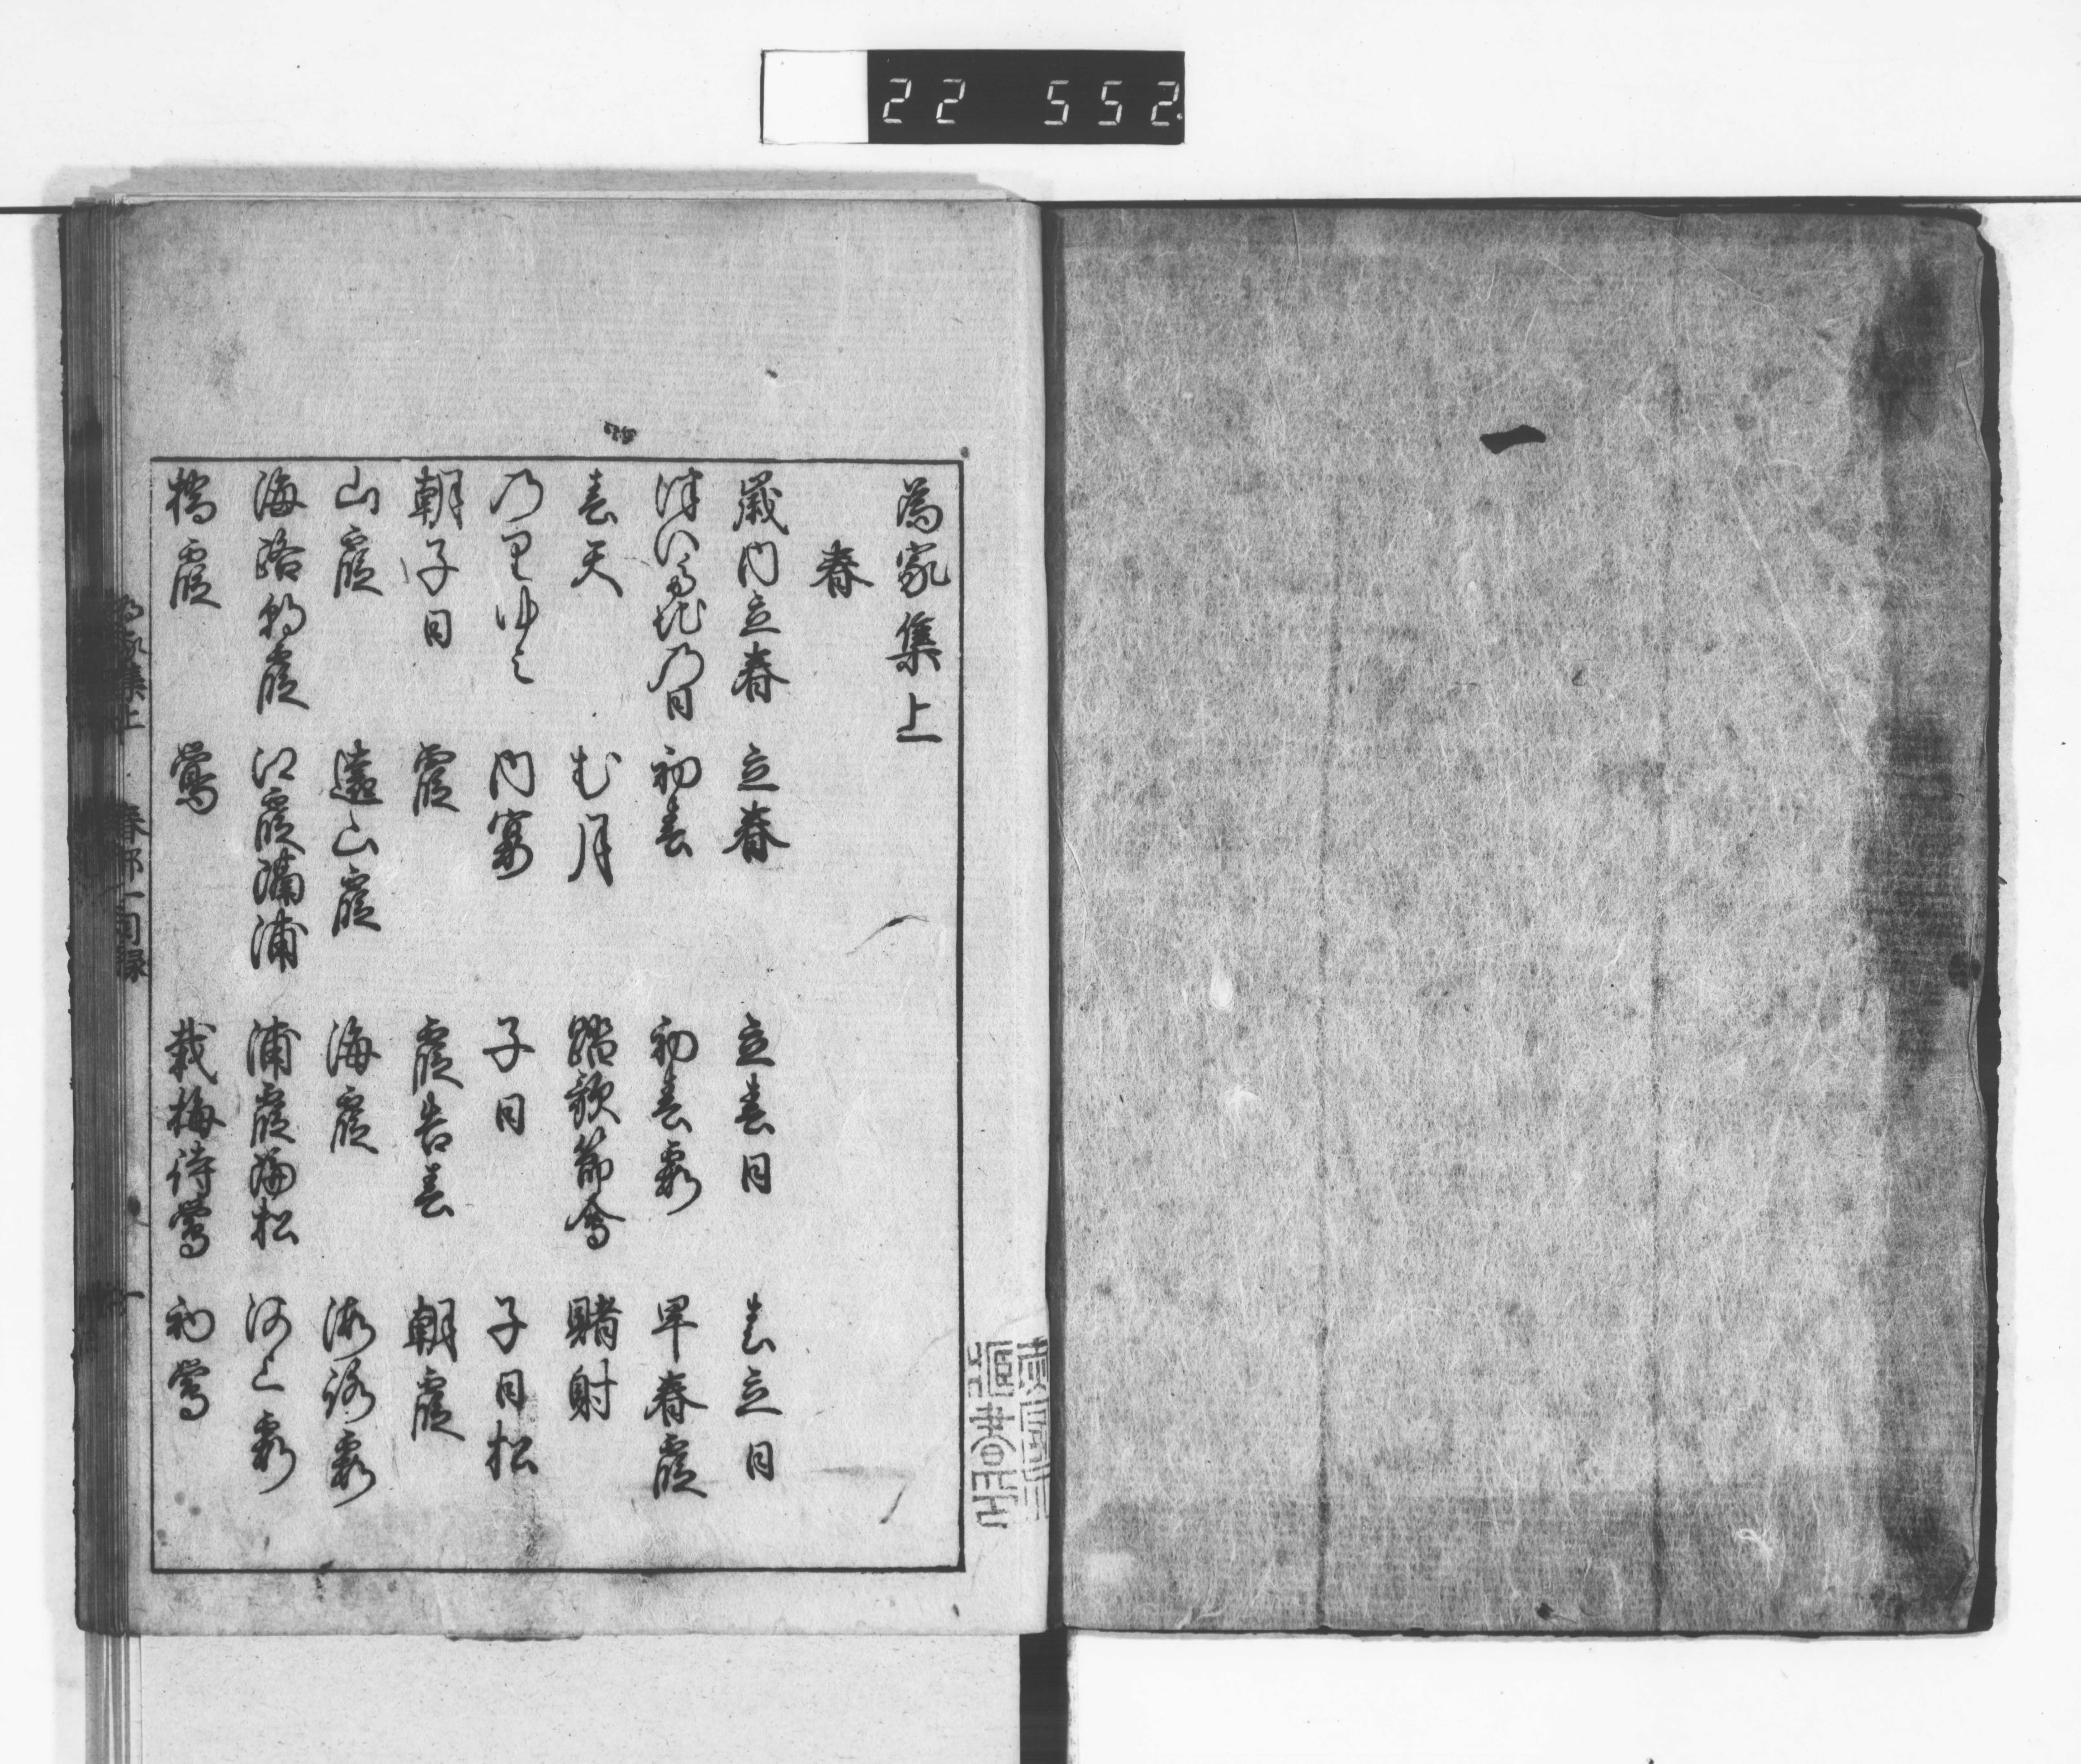 22 552
一
為家集上
春
歳内立春 立春 立春日 春立日
乃日 初春 初春霞 早春霞
春天 む月 踏歌節会 賭射
内宴 子日 子日松
朝子日 霞 霞告春 朝霞
山霞 遠山霞 海霞 海路霞
海路朝霞 江霞満浦 浦霞 松 河上霞
橋霞 鶯 栽梅待鶯 初鶯
為家集上 春部一目録 一